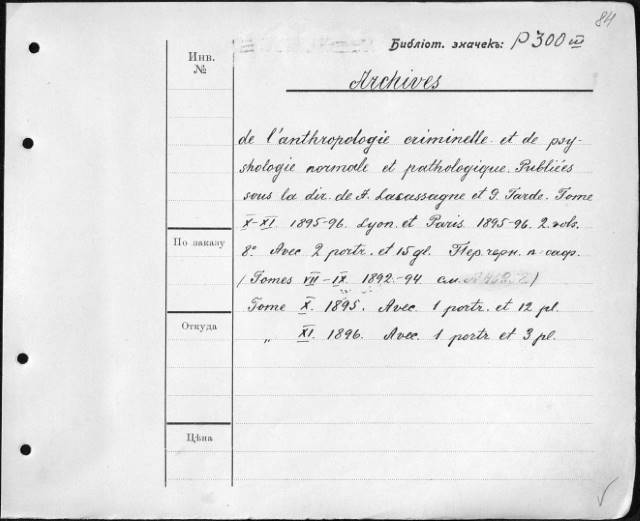 84
Библіот. значекъ: P300 III
Инв.
№
Archives
de l'anthropologie criminelle et de psy-
chologie normale et pathologique. Publiées
sous la dir. de A. Lacassagne et G. Tarde. Tome
X-XI. 1895-96. Lyon et Paris 1895-96. 2 vols.
По заказу
8º Avec 2 portr. et 15 pl. Пер. черн. п-саф.
(Tomes VII-IX. 1892-94 см.
Tome X. 1895. Avec 1 portr. et 12 pl.
Откуда
„ XI. 1896. Avec 1 portr. et 3 pl.
Цѣна